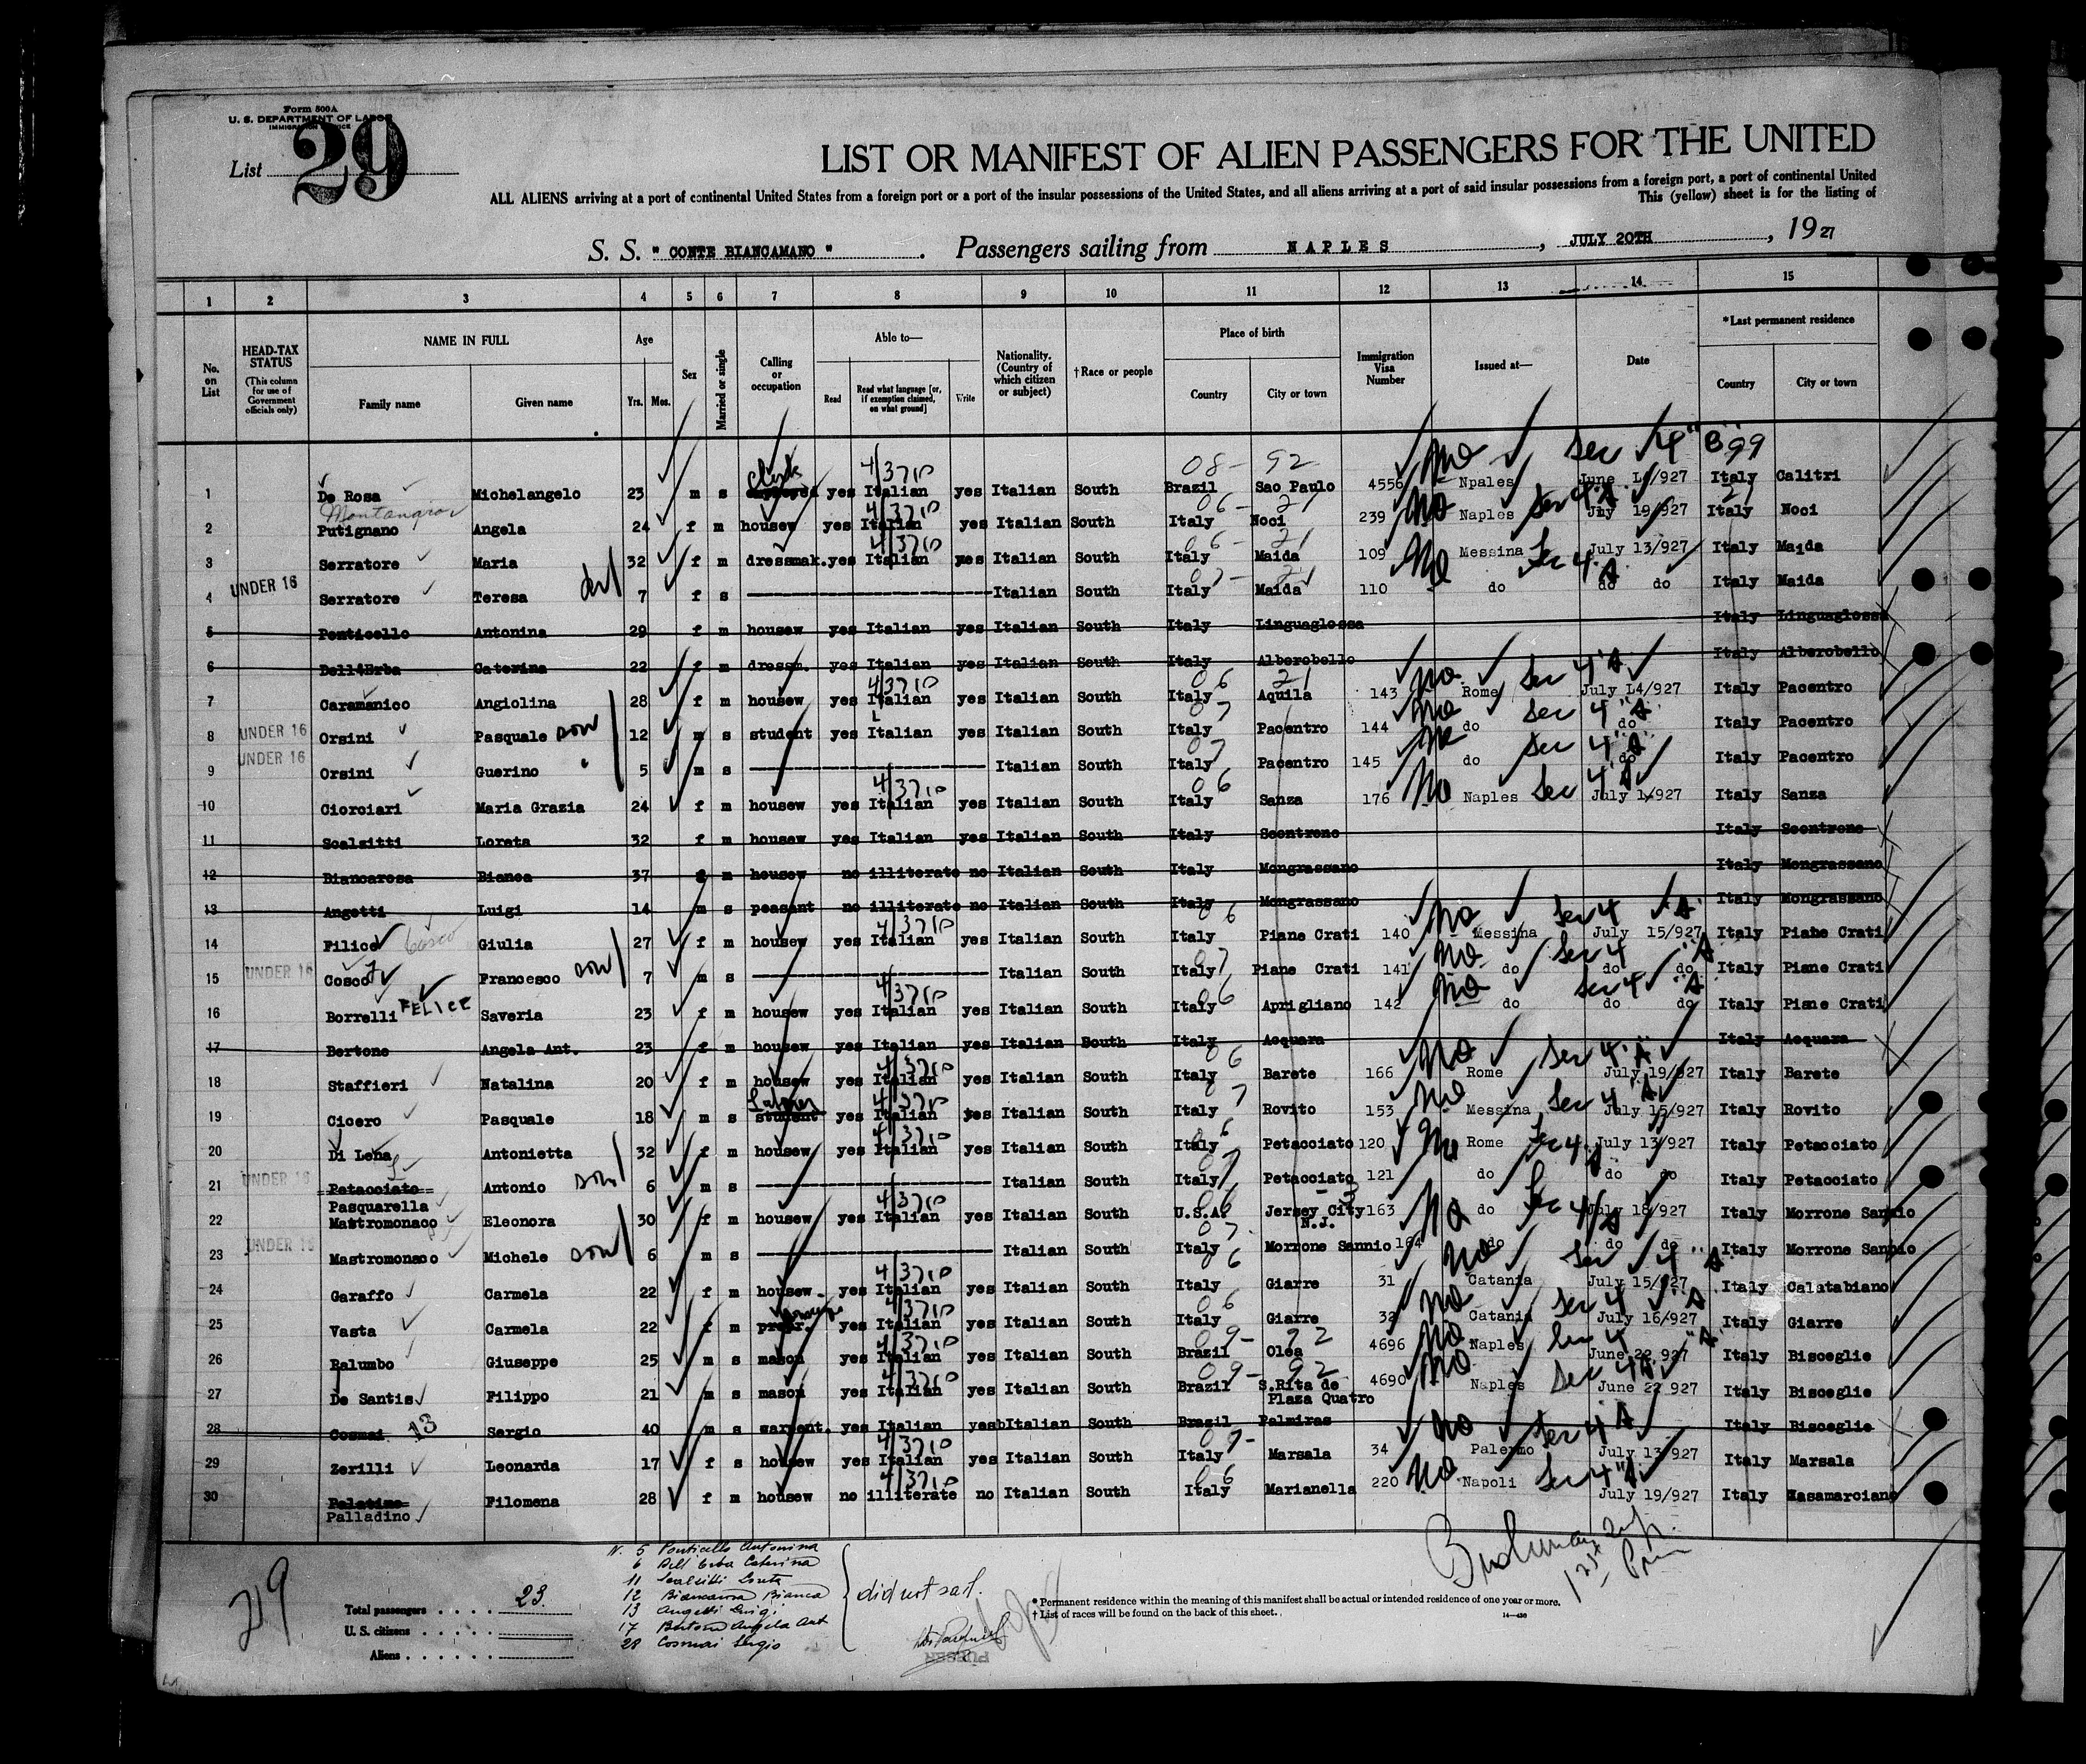 Form 500A
U. S. DEPARTMENT OF LABOR
IMMIGRATION SERVICE
List 29
LIST OR MANIFEST OF ALIEN PASSENGERS FOR THE UNITED
ALL ALIENS arriving at a port of continental United States from a foreign port or a port of the insular possessions of the United States, and all aliens arriving at a port of said insular possessions from a foreign port, a port of continental United
This (yellow) sheet is for the listing of
S. S. " CONTE BIANCAMANO " . Passengers sailing from NAPLES , JULY 20TH , 1927
1 2 3 4 5 6 7 8 9 10 11 12 13 14 15
No. on List
HEAD-TAX STATUS (This column for use of Government officials only)
NAME IN FULL Family name Given name
Age Yrs. Mos.
Sex
Married or single
Calling or occupation
Able to— Read Read what language [or, if exemption claimed, on what ground] Write
Nationality. (Country of which citizen or subject)
†Race or people
Place of birth Country City or town
Immigration Visa Number
Issued at—
Date
*Last permanent residence Country City or town
08- 92 No Sec 4 "B" 99
1 De Rosa Michelangelo 23 m s Clerk yes Italian yes Italian South Brazil Sao Paulo 4556 Npales June 927 Italy Calitri
2 Putignano Angela 24 f m housew yes Italian yes Italian South Italy Noci 239 No Naples Sec 4 "A" JUy 19/927 Italy Noci
3 Serratore Maria 32 f m dressmak. yes Italian yes Italian South Italy Maida 109 No Messina Sec 4 "A" July 13/927 Italy Maida
4 UNDER 16 Serratore Teresa 7 f s Italian South Italy Maida 110 do do do Italy Maida
5 Ponticello Antonina 29 f m housew yes Italian yes Italian South Italy Linguaglossa Italy Linguaglossa
6 Dell'Erba Caterina 22 f m dressm. yes Italian yes Italian South Italy Alberobello Italy Alberobello
7 Caramanico Angiolina 28 f m housew yes Italian yes Italian South Italy Aquila 143 No Rome Sec 4 "A" July 14/927 Italy Pacentro
8 UNDER 16 Orsini Pasquale son 12 m s student yes Italian yes Italian South Italy Pacentro 144 No do Sec 4 "A" do Italy Pacentro
9 UNDER 16 Orsini Guerino " 5 m s Italian South Italy Pacentro 145 No do Sec 4 "A" do Italy Pacentro
10 Ciorciari Maria Grazia 24 f m housew yes Italian yes Italian South Italy Sanza 176 No Naples Sec 4 "A" July 1/927 Italy Sanza
11 Scalzitti Loreta 32 f m housew yes Italian yes Italian South Italy Scontrone Italy Scontrone
12 Biancarosa Bianca 37 f m housew no illiterate no Italian South Italy Mongrassano Italy Mongrassano
13 Angotti Luigi 14 m s peasant no illiterate no Italian South Italy Mongrassano Italy Mongrassano
14 Filice Cosco Giulia 27 f m housew yes Italian yes Italian South Italy Piane Crati 140 No Messina Sec 4 "A" July 15/927 Italy Piane Crati
15 UNDER 16 Cosco Francesco son 7 m s Italian South Italy Piane Crati 141 No do Sec 4 "A" do do Italy Piane Crati
16 Borrelli FELICE Saveria 23 f m housew yes Italian yes Italian South Italy Aprigliano 142 No do Sec 4 "A" do do Italy Piane Crati
17 Bertone Angela Ant. 23 f m housew yes Italian yes Italian South Italy Acquara Italy Acquara
18 Staffieri Natalina 20 f m housew yes Italian yes Italian South Italy Barete 166 No Rome Sec 4 "A" July 19/927 Italy Barete
19 Cicero Pasquale 18 m s student Laborer yes Italian yes Italian South Italy Rovito 153 No Messina Sec 4 "A" July 15/927 Italy Rovito
20 Di Lena Antonietta 32 f m housew yes Italian yes Italian South Italy Petacciato 120 No Rome Sec 4 "A" July 13/927 Italy Petacciato
21 UNDER 16 Petacciato Antonio son 6 m s Italian South Italy Petacciato 121 do do do Italy Petacciato
Pasquarella
22 Mastromonaco Eleonora 30 f m housew yes Italian yes Italian South U.S.A. Jersey City N.J. 163 No do Sec 4 "A" July 18/927 Italy Morrone Sannio
23 UNDER 16 Mastromonaco Michele son 6 m s Italian South Italy Morrone Sannio 164 do do do Italy Morrone Sannio
24 Garaffo Carmela 22 f m housew. yes Italian yes Italian South Italy Giarre 31 No Catania Sec 4 "A" July 15/927 Italy Calatabiano
25 Vasta Carmela 22 f m yes Italian yes Italian South Italy Giarre 32 No Catania Sec 4 "A" July 16/927 Italy Giarre
26 Balumbo Giuseppe 25 m s mason yes Italian yes Italian South Brazil Olea 4696 No Naples Sec 4 "A" June 22 927 Italy Bisceglie
27 De Santis Filippo 21 m s mason yes Italian yes Italian South Brazil S.Rita de Plaza Quatro 4690 No Naples Sec 4 "A" June 22 927 Italy Bisceglie
28 Cosmai 13 Sergio 40 m s carpent. yes Italian yes Italian South Brazil Palmiras Italy Bisceglie
29 Zerilli Leonarda 17 f s housew yes Italian yes Italian South Italy Marsala 34 No Palermo Sec 4 "A" July 13/927 Italy Marsala
30 Palatino Filomena 28 f m housew no illiterate no Italian South Italy Marianella 220 No Napoli Sec 4 "A" July 19/927 Italy Casamarciano
Palladino
N. 5 Ponticello Antonina
6 Dell Erba Caterina
11 Scalzitti Loreta
12 Biancarosa Bianca
13 Angotti Luigi
17 Bertone Angela Ant
28 Cosmai Sergio
did not sail.
219
Total passengers . . . . 23.
U. S. citizens . . . . .
Aliens . . . . . .
PURSER
* Permanent residence within the meaning of this manifest shall be actual or intended residence of one year or more.
† List of races will be found on the back of this sheet.
14—430